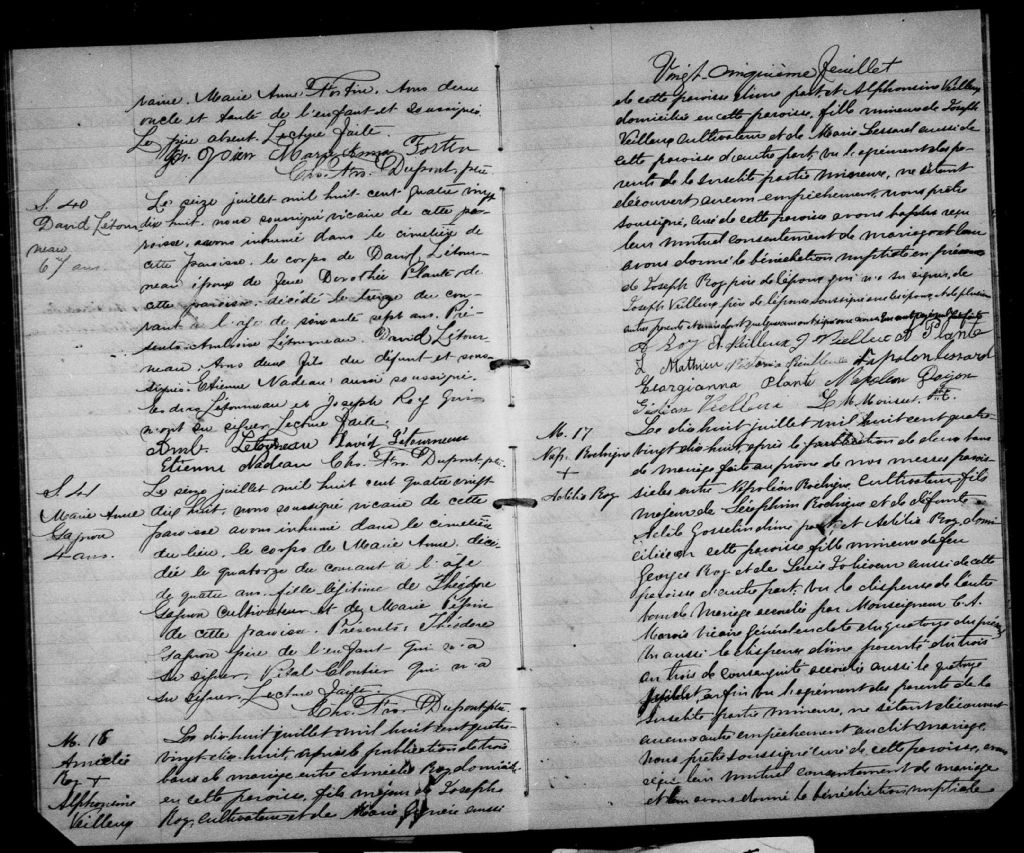 raine. Marie Anne Fortin. Ans deux
oncle et tante de l'enfant et soussignés.
Le père absent. Lecture faite.
Marie Anna Fortin
Chs. Frs. Dupont, ptre.
S. 40
David Létour
neau
67 ans.
Le seize juillet mil huit cent quatre vingt
dix huit, nous soussigné vicaire de cette pa-
roisse, avons inhumé dans le cimetière de
cette paroisse, le corps de David Létour-
neau époux de feue Dorothée Plante de
cette paroisse, décédé le treize du cou-
rant à l'age de soixante sept ans. Pré-
sents Ambroise Létourneau. David Létour
neau. Ans deux fils du défunt et sous-
signés. Etienne Nadeau aussi soussigné.
Létourneau et Joseph Roy qui
n'ont su signer. Lecture faite.
Amb. Letourneau David Létourneau
Etienne Nadeau Chs. Frs. Dupont, ptre.
S. 41
Marie Anne
Gagnon
4 ans.
Le seize juillet mil huit cent quatre vingt
dix huit, nous soussigné vicaire de cette
paroisse avons inhumé dans le cimetière
du lieu, le corps de Marie Anne, décé-
dée le quatorze du courant à l'age
de quatre ans, fille légitime de Théodore
Gagnon cultivateur et de Marie Pépin
de cette paroisse. Présents, Théodore
Gagnon père de l'enfant qui n'a
su signer, Vital Cloutier qui n'a
su signer. Lecture faite.
Chs. Frs. Dupont, ptre.
M. 16
Amédée
Roy +
Alphonsine
Veilleux
Le dix-huit juillet mil huit cent quatre
vingt-dix-huit, après la publication de trois
bans de mariage entre Amédée Roy, domicilié
en cette paroisse, fils majeur de Joseph
Roy, cultivateur et de Marie aussi
Vingt-cinquième feuillet
de cette paroisse d'une part et Alphonsine Veilleux
domiciliée en cette paroisse, fille mineure de Joseph
Veilleux cultivateur et de Marie Lessard aussi de
cette paroisse d'autre part, vu l'agrément des pa-
rents de la susdite partie mineure, ne s'étant
découvert aucun empêchement, nous prêtre
soussigné, curé de cette paroisse avons reçu
leur mutuel consentement de mariage et leur
avons donné la bénédiction nuptiale en présence
de Joseph Roy père de l'époux qui n'a su signer, de
Joseph Veilleux père de l'épouse soussigné et de plusieurs
autres parents et amis
Roy A. Veilleux J. Veilleux A Plante
L Mathieu Veilleux Napoléon Lessard
Georgianna Plante Napoléon Doyon
Gédéon Vielleux
M. 17
Nap. Rodrigue
+
Adélia Roy
Le dix huit juillet mil huit cent quatre
vingt dix huit, après la publication de deux bans
de mariage faite au prône de nos messes parois
siales entre Napoléon Rodrigue cultivateur, fils
majeur de Séraphin Rodrigue et de défunte
Adèle Gosselin d'une part et Adélia Roy, domi
ciliée en cette paroisse, fille mineure de feu
Georges Roy et de aussi de cette
paroisse d'autre part, vu la dispense de l'autre
ban de mariage accordée par Monseigneur C. A.
Marois Vicaire Général en date du quatorze du présent
vu aussi la dispense d'une parenté du trois
au trois de consanguinité accordée aussi le quatorze
Juillet, enfin vu l'agrément des parents de la
susdite partie mineure, ne s'étant découvert
aucun autre empêchement au dit mariage
nous prêtre soussigné curé de cette paroisse, avons
reçu leur mutuel consentement de mariage
et leur avons donné la bénédiction nuptiale